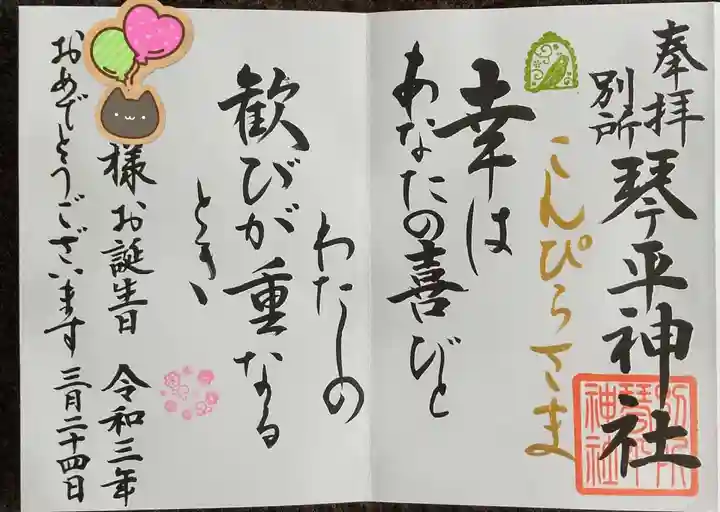 奉拝
別所
琴平神社
別所
琴平
神社
こんぴらさま
幸は
あなたの喜びと
わたしの
歓びが重なる
とき、
様お誕生日 令和三年
おめでとうございます 三月二十四日